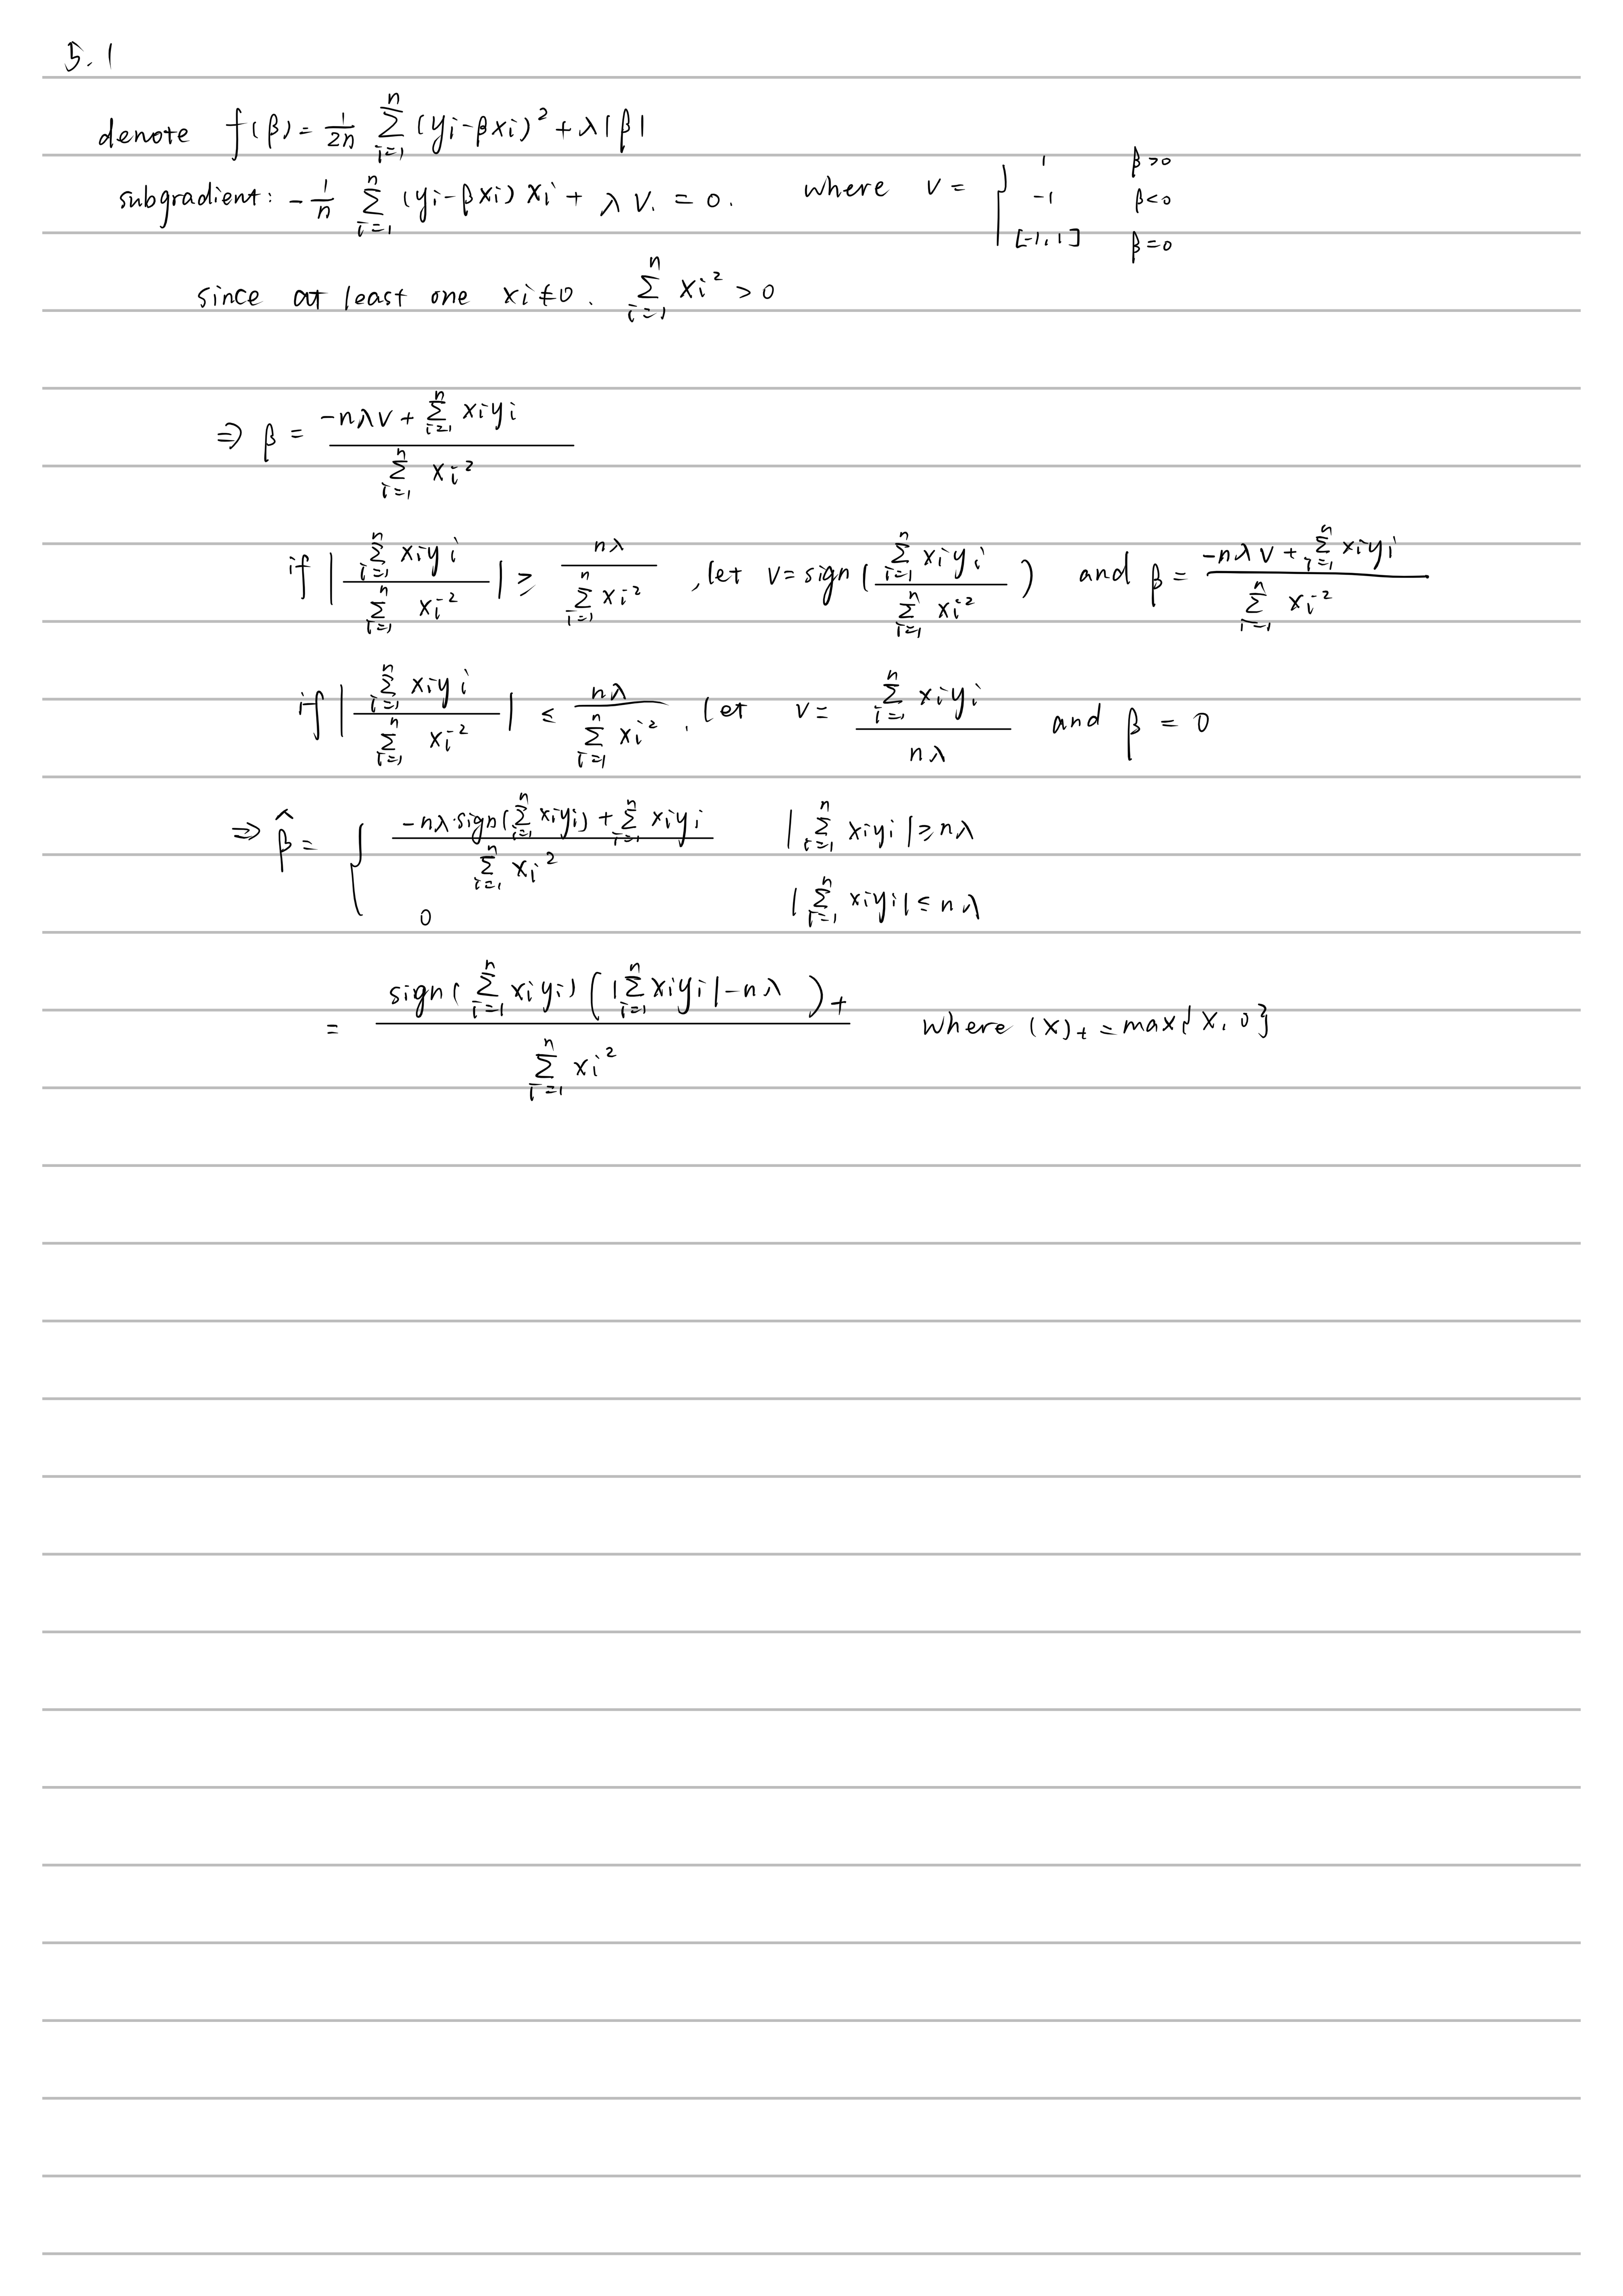 5.1
denote f(β) = \frac{1}{2n} \sum_{i=1}^{n} (yi-βxi)^2 + λ|β|
subgradient: -\frac{1}{n} \sum_{i=1}^{n} (yi-βxi) xi + λ v. = 0. where v = { 1 β>0; -1 β<0; [-1,1] β=0
since at least one xi≠0. \sum_{i=1}^{n} xi^2 > 0
⇒ β = \frac{-nλv + \sum_{i=1}^{n} xiyi}{\sum_{i=1}^{n} xi^2}
if |\frac{\sum_{i=1}^{n} xiyi}{\sum_{i=1}^{n} xi^2}| ≥ \frac{nλ}{\sum_{i=1}^{n} xi^2}, let v = sign(\frac{\sum_{i=1}^{n} xiyi}{\sum_{i=1}^{n} xi^2}) and β = \frac{-nλv + \sum_{i=1}^{n} xiyi}{\sum_{i=1}^{n} xi^2}
if |\frac{\sum_{i=1}^{n} xiyi}{\sum_{i=1}^{n} xi^2}| ≤ \frac{nλ}{\sum_{i=1}^{n} xi^2}, let v = \frac{\sum_{i=1}^{n} xiyi}{nλ} and β = 0
⇒ \hat{β} = { \frac{-nλ·sign(\sum_{i=1}^{n} xiyi) + \sum_{i=1}^{n} xiyi}{\sum_{i=1}^{n} xi^2} |\sum_{i=1}^{n} xiyi| ≥ nλ
0 |\sum_{i=1}^{n} xiyi| ≤ nλ
= \frac{sign(\sum_{i=1}^{n} xiyi) (|\sum_{i=1}^{n} xiyi| - nλ)_+}{\sum_{i=1}^{n} xi^2} where (x)_+ = max{x, 0}